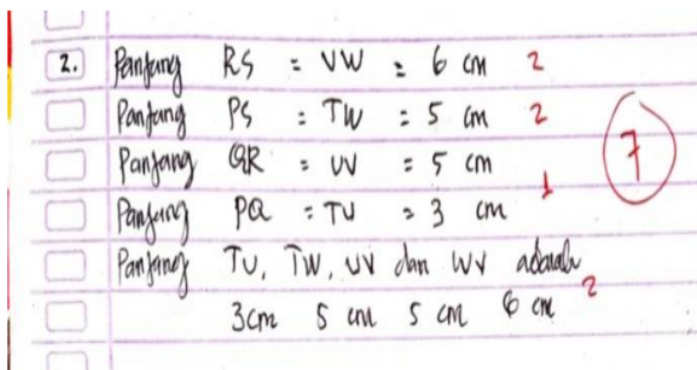 2. Panjang RS = VW = 6 cm 2
Panjang PS = TW = 5 cm 2
Panjang QR = UV = 5 cm
1
Panjang PQ = TU = 3 cm
7
Panjang TU, TW, UV dan WV adalah
3cm 5 cm 5 cm 6 cm 2